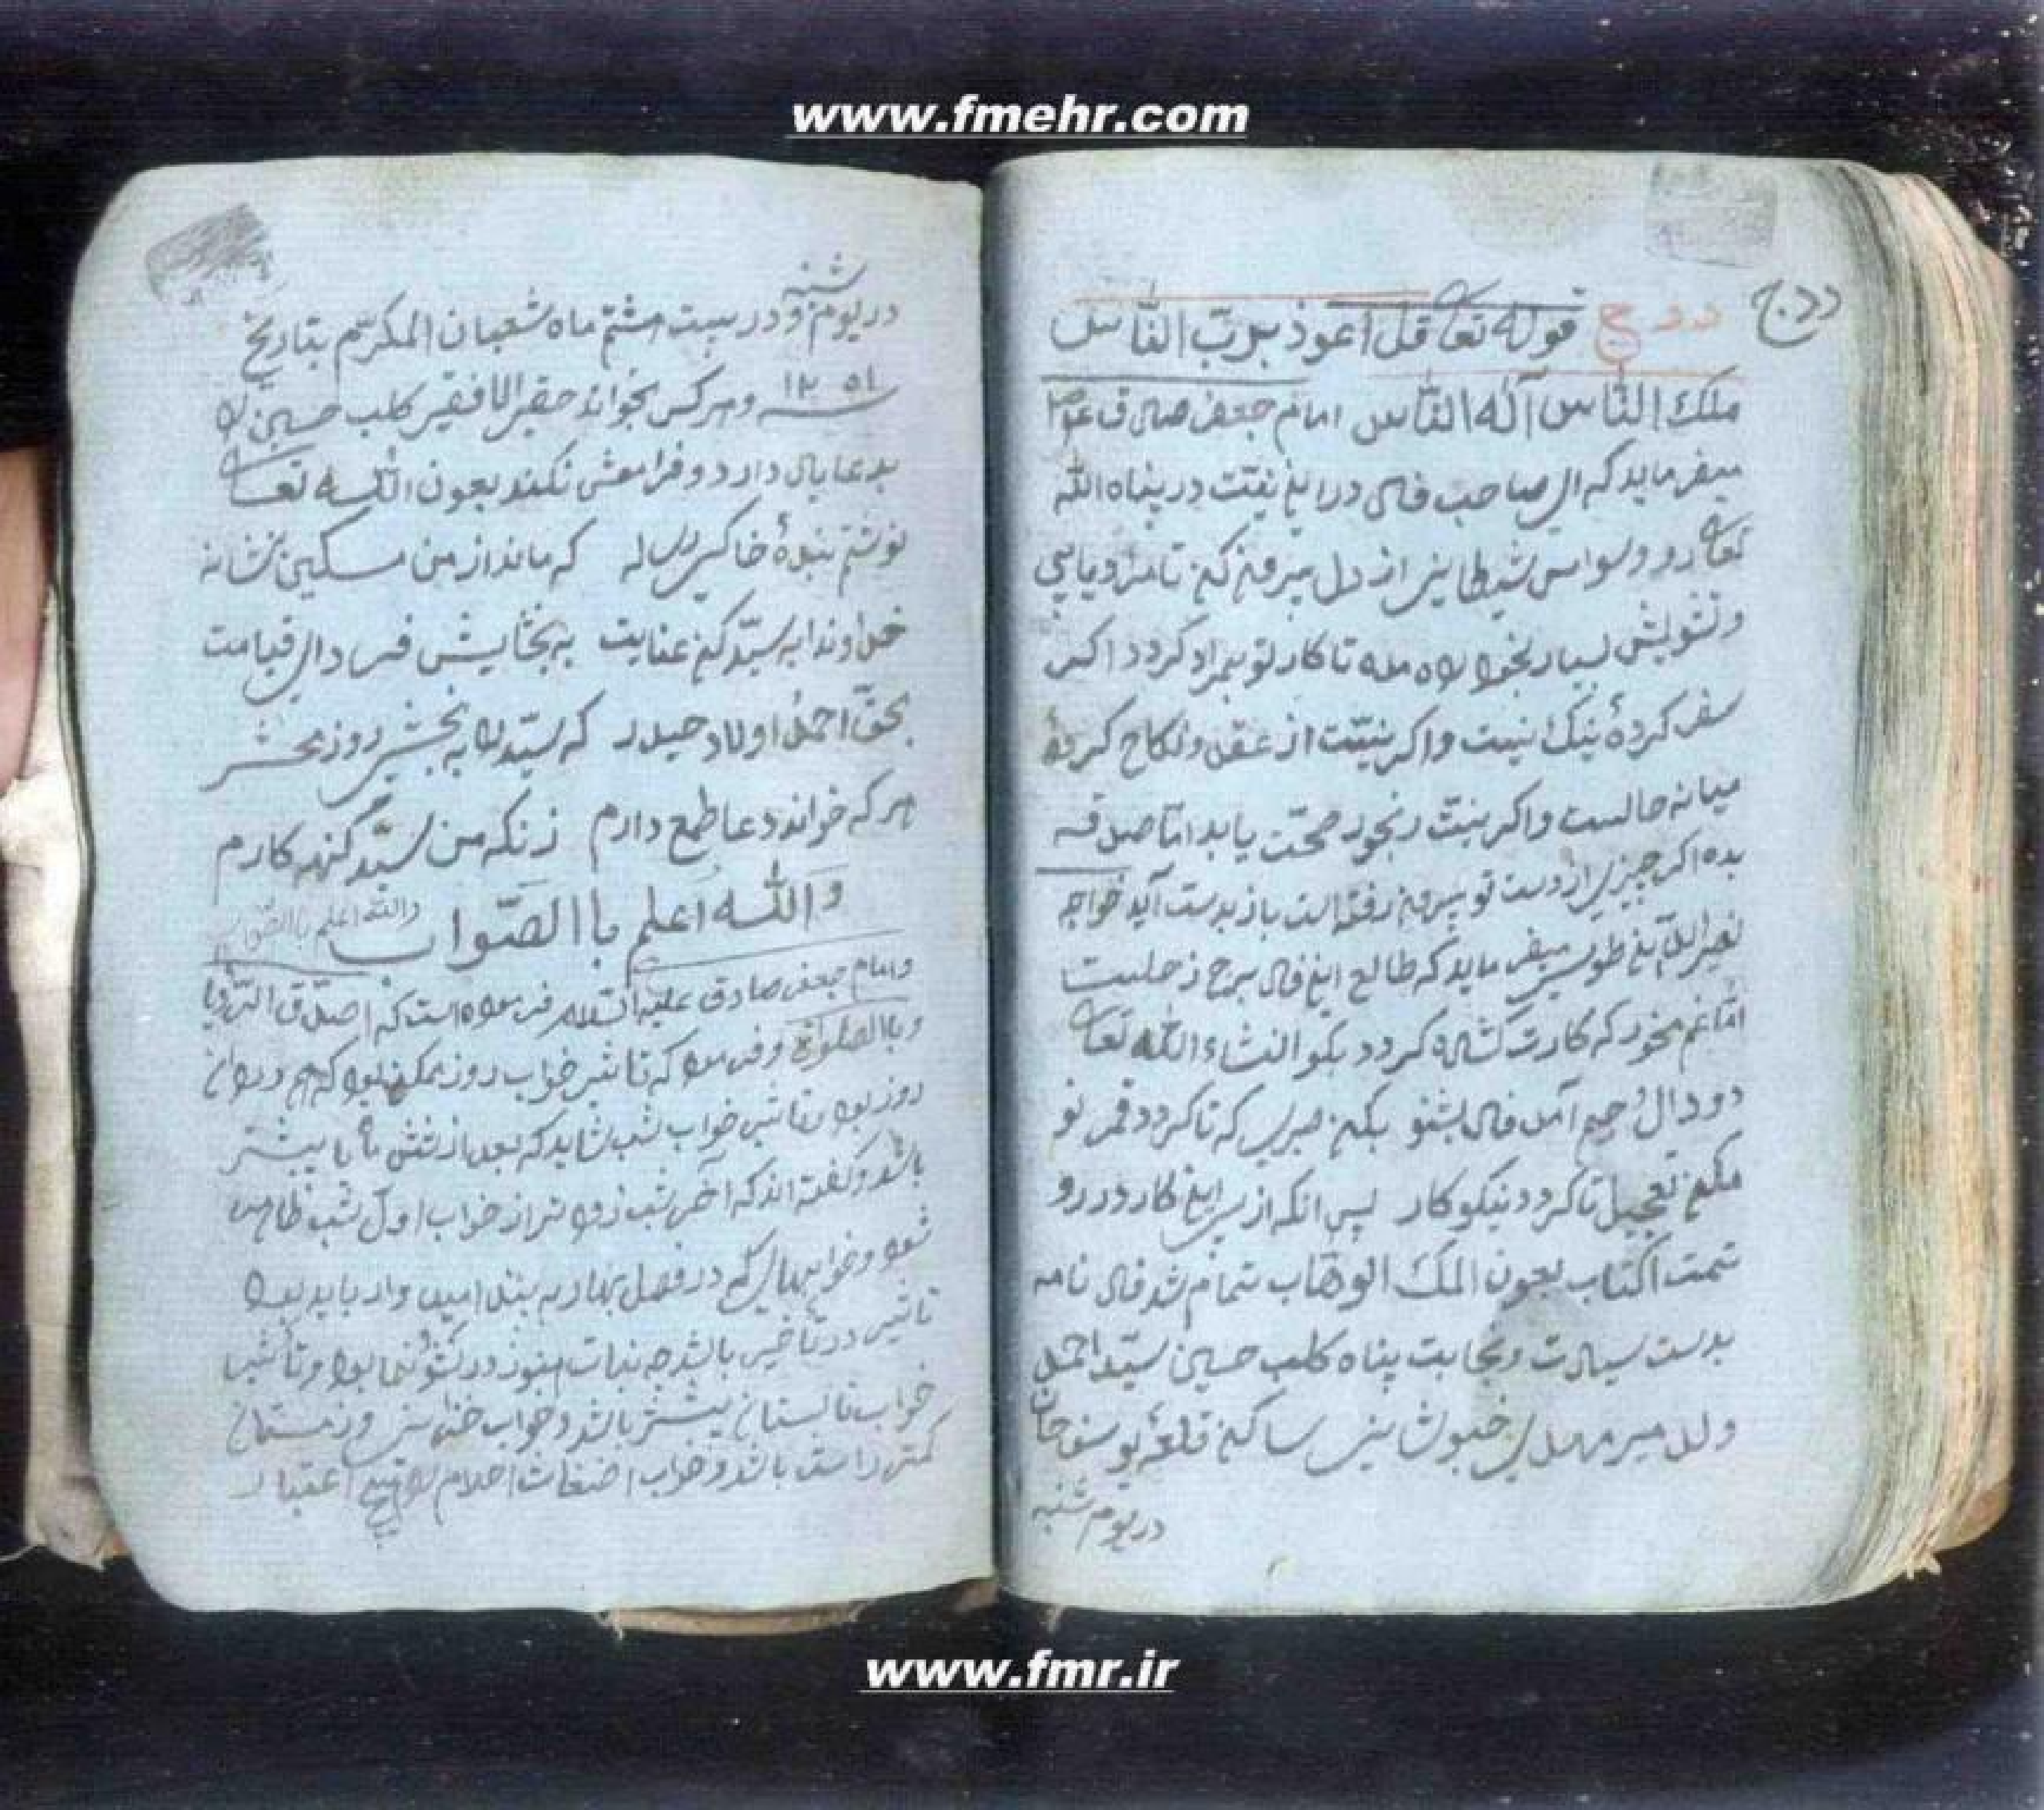 www.fmehr.com
ددج
ددج قوله تعا قل اعوذ برب الناس
ملک الناس آله الناس امام جعفر صادق ع
میفرماید که ای صاحب فال در این نیت در پناه الله
تعا رو و وسواس شیطانی از دل بیرون کن تا مراد یابی
و تشویش بسیار بخود راه مده تا کار تو بمراد گردد اگر
سفر کردهٔ نیک نیست و اگر نیّت از عقد و نکاح کردهٔ
میانه حالست و اگر نیت رنجور صحّت یابد امّا صدقه
بده اگر چیزی از دست تو بیرون رفته است باز بدست آید خواجه
نصیرالدّین طوسی میفرماید که طالع این فال برج زحلست
امّا غم مخور که کارت گشاده گردد بگو انشاء الله تعا
دو دال و جیم آمد فال بشنو بکن صبری که تا گردد قمر نو
مکن تعجیل تا گردد نیکو کار پس انکه از پس این کار در رو
تمت اکتاب بعون الملک الوهّاب تمام شد فال نامه
بدست سیادت و نجابت پناه کلب حسین سیّد احمد
ولد میر مهدی خبوشانی ساکن قلعهٔ یوسف خان
در یوم شنبه
شنبه
در یوم و در بیست هشتم ماه شعبان المکرّم بتاریخ
سنه ۱۲۵۱ و هر کس بخواند حقیر الافقیر کلب حسین را
بدعا یاد دارد و فرامش نکند بعون اللّه تعا
نوشتم بنوهٔ خاکی رساله که ماند از من مسکین نشانه
خداوندا به سیّد کن عنایت به بخشایش فردای قیامت
بحق احمد اولاد حیدر که سیّد را به بخشی روز محشر
هر که خواند دعا طمع دارم زنکه من سیّد گنه کارم
واللّه اعلم باالصّواب والله اعلم باالصّواب
و امام جعفر صادق علیه السّلام فرموده است که اصدق الرّویا
و باالصلواة و فرمود که تاثیر خواب روز ممکن بود که هم در آن
روز بود و تاثیر خواب شب شاید که بعد از شش ماه یا بیشتر
باشد و گفته اند که آخر شب زودتر از خواب اول شب ظاهر
شود و خوابهای که در فصل بهار به بیند امیدوار باید بود
تاثیر در تأخیر باشد چه نبات هنوز در نشو نما بود و تأثیر
خواب تابستان بیشتر باشد و خواب خزانی و زمستان
کمتر راست باشد و خواب اضغاث احلام را هیچ اعتبار
www.fmr.ir